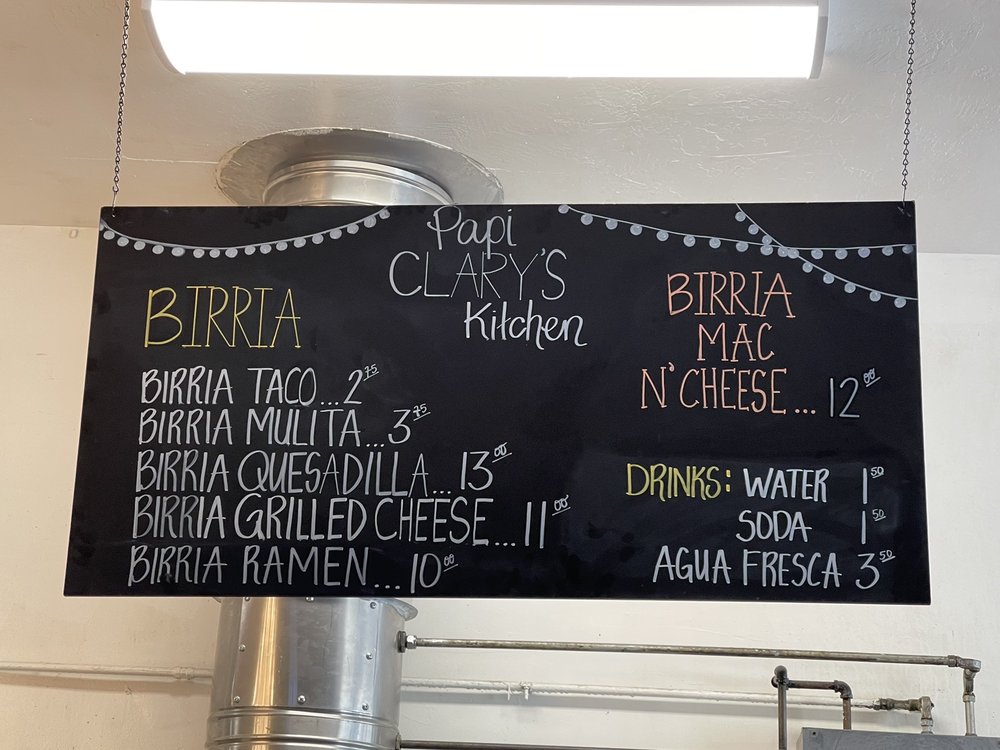 Papi
CLARY'S
Kitchen
BIRRIA
BIRRIA TACO... 2 75
BIRRIA MULITA... 3 75
BIRRIA QUESADILLA... 13 00
BIRRIA GRILLED CHEESE... 11 00
BIRRIA RAMEN... 10 00
BIRRIA
MAC
N' CHEESE... 12 00
DRINKS: WATER 1 50
SODA 1 50
AGUA FRESCA 3 50